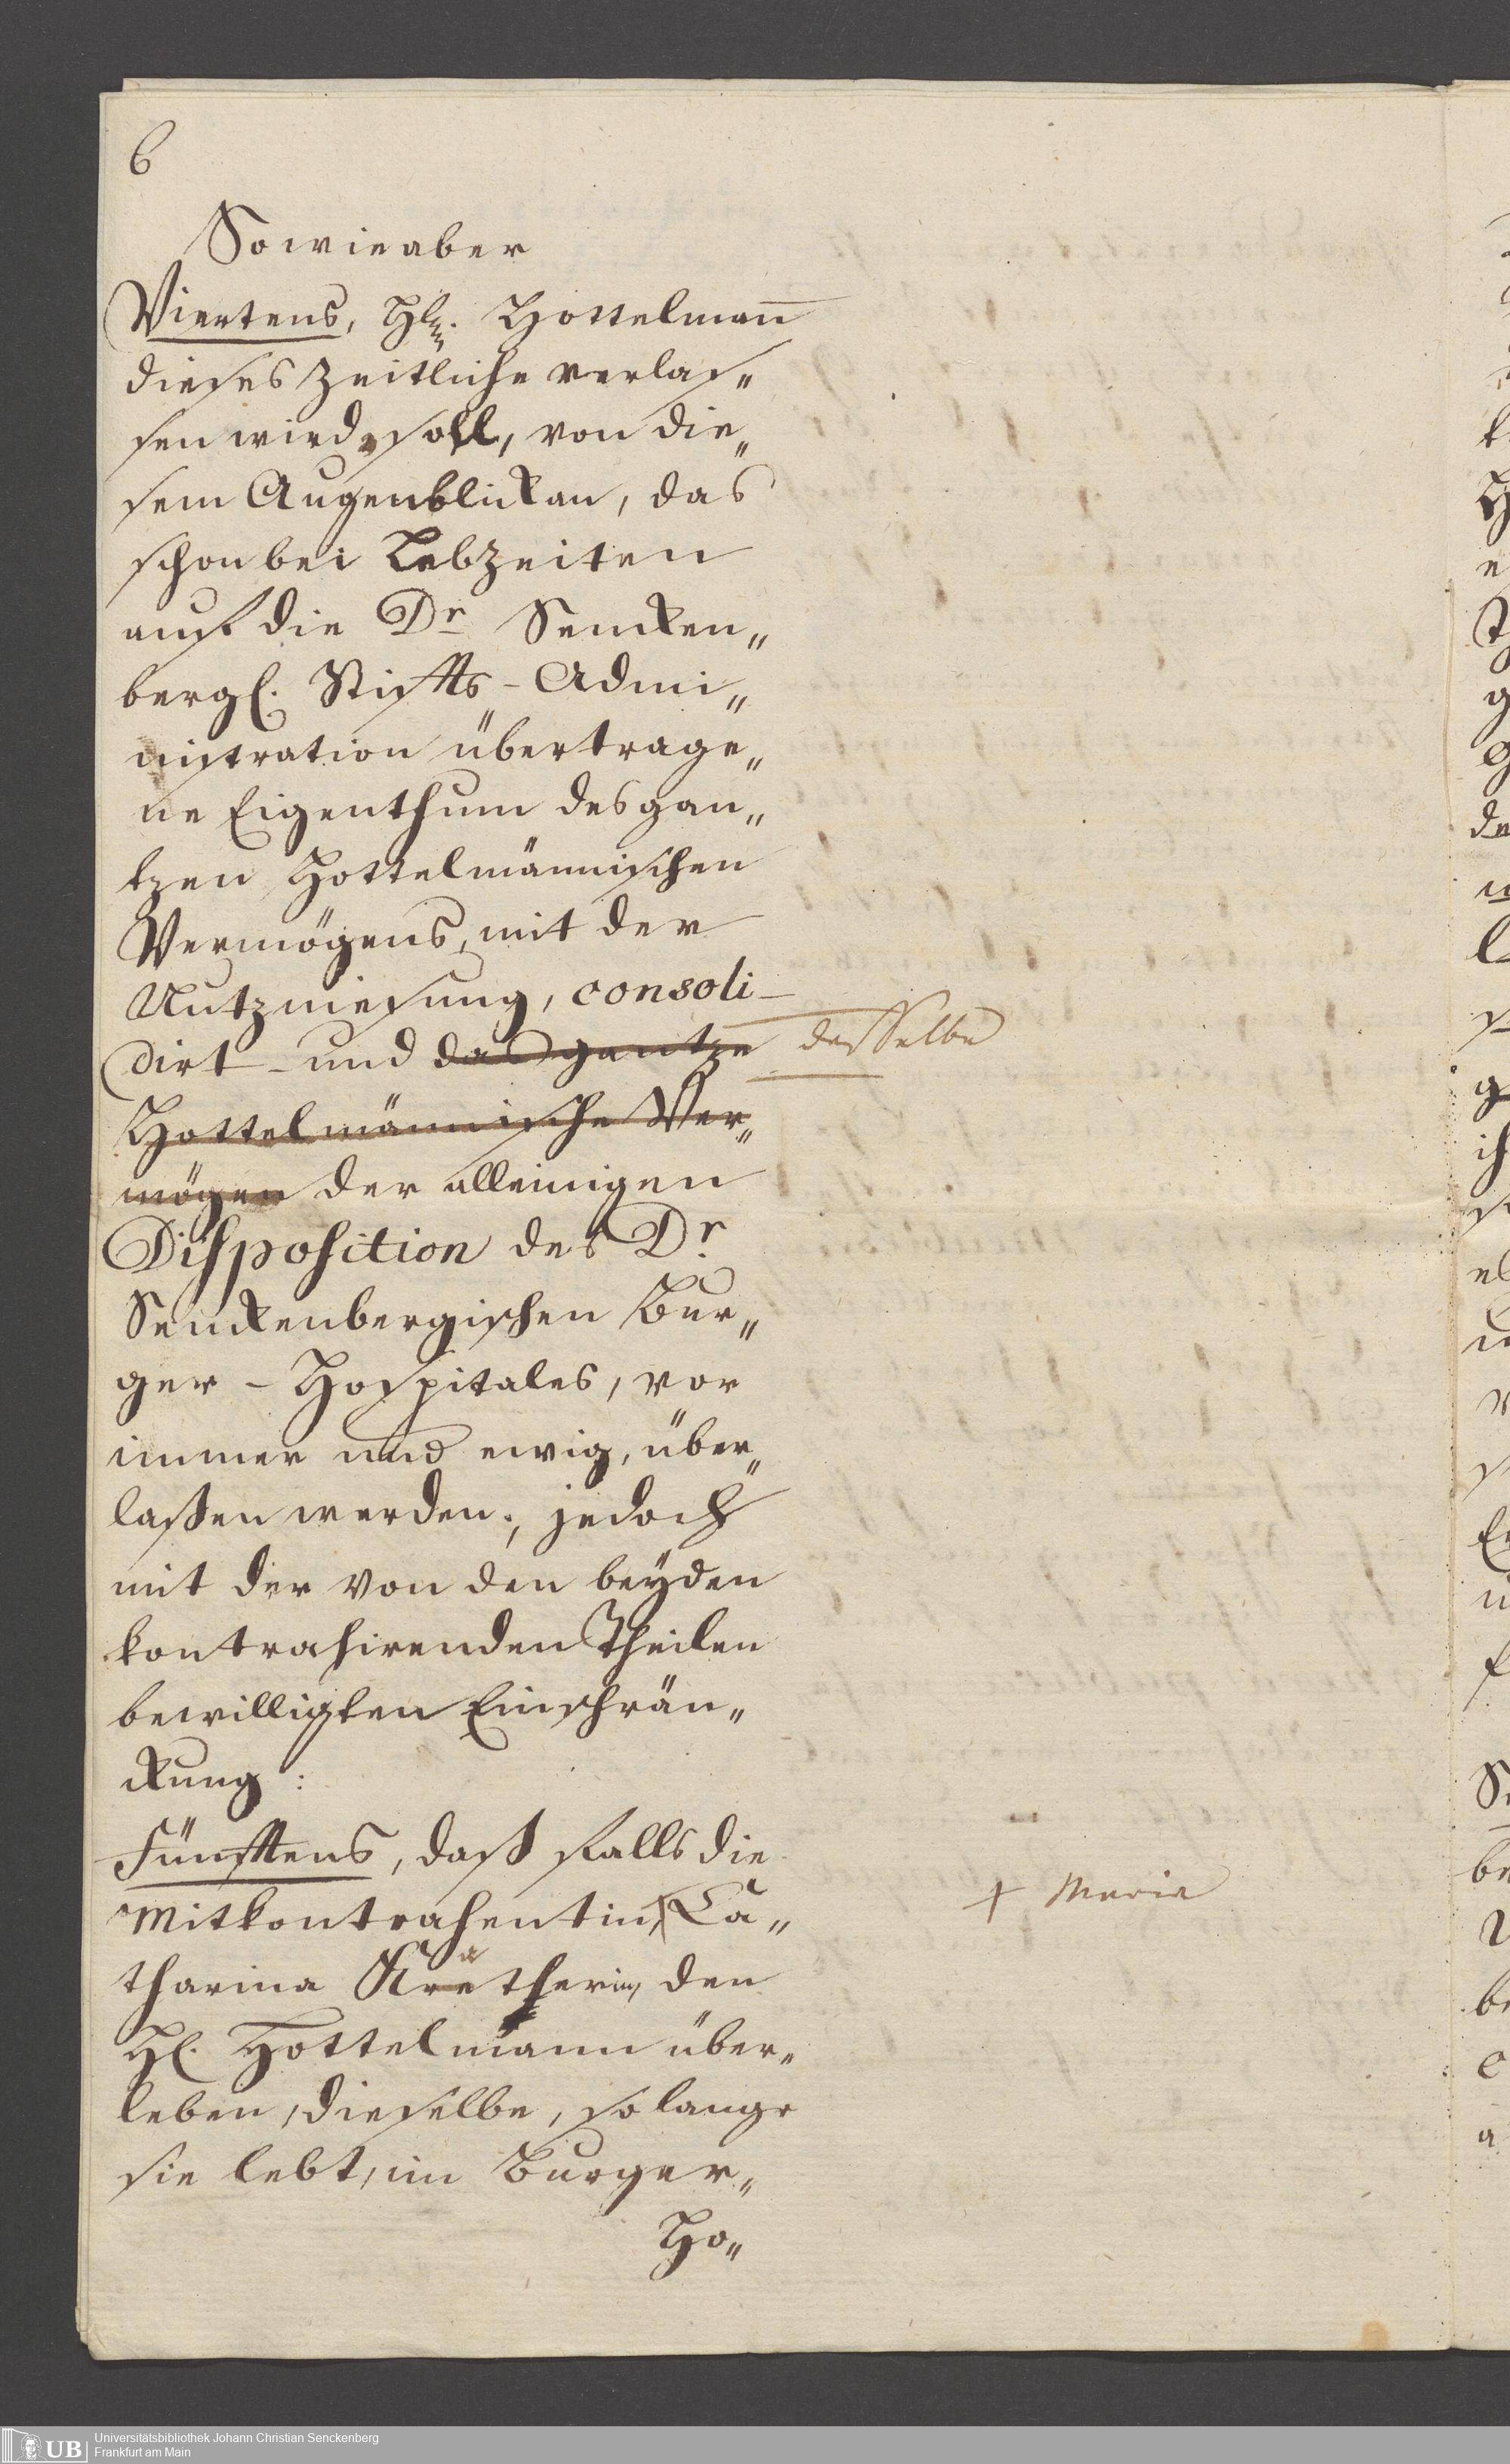 6
Sowie aber
Viertens, Hl. Hottelmann̄
dieses Zeitliche verlas„
sen wird, soll, von die„
sem Augenblick an, das
schon bei Lebzeiten
auf die Dr Sencken„
bergl. Stiffts-Admi„
nistration übertrage„
ne Eigenthum des gan„
tzen Hottelmännischen
Vermögens, mit der
Nutzniesung, consoli-
dirt - und das gantze desselbe
Hottelmännische Ver„
mögen der alleinigen
Disposition des Dr.
Senckenbergischen Bur„
ger - Hospitales, vor
immer und ewig, über„
laßen werden; jedoch
mit der von den beyden
kontrahirenden Theilen
bewilligten Einschrän„
kung:
Fünfftens, daß falls die
Mitkontrahentin, Ca„ + Maria
tharina Kretherin, den
Hl. Hottelmann über„
leben, dieselbe, so lange
sie lebt, im Burger„
Ho„
UB
Universitätsbibliothek Johann Christian Senckenberg
Frankfurt am Main